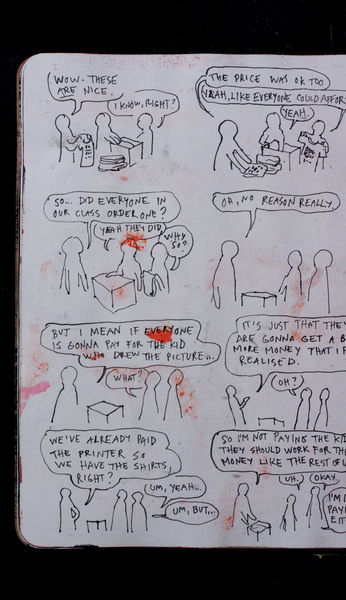 WOW. THESE
ARE NICE.
I KNOW, RIGHT?
THE PRICE WAS OK TOO
YEAH, LIKE EVERYONE COULD AFFOR
YEAH.
SO... DID EVERYONE IN
OUR CLASS ORDER ONE?
YEAH THEY DID
WHY
SO?
OH, NO REASON REALLY.
BUT I MEAN IF EVERYONE
IS GONNA PAY FOR THE KID
WHO DREW THE PICTURE...
WHAT?
IT'S JUST THAT THEY
ARE GONNA GET A B
MORE MONEY THAT IF
REALISED.
OH?
WE'VE ALREADY PAID
THE PRINTER SO
WE HAVE THE SHIRTS,
RIGHT?
UM, YEAH...
UM, BUT...
SO I'M NOT PAYING THE KID
THEY SHOULD WORK FOR TH
MONEY LIKE THE REST OF U
UH.
OKAY.
I'M
PAY
EIT